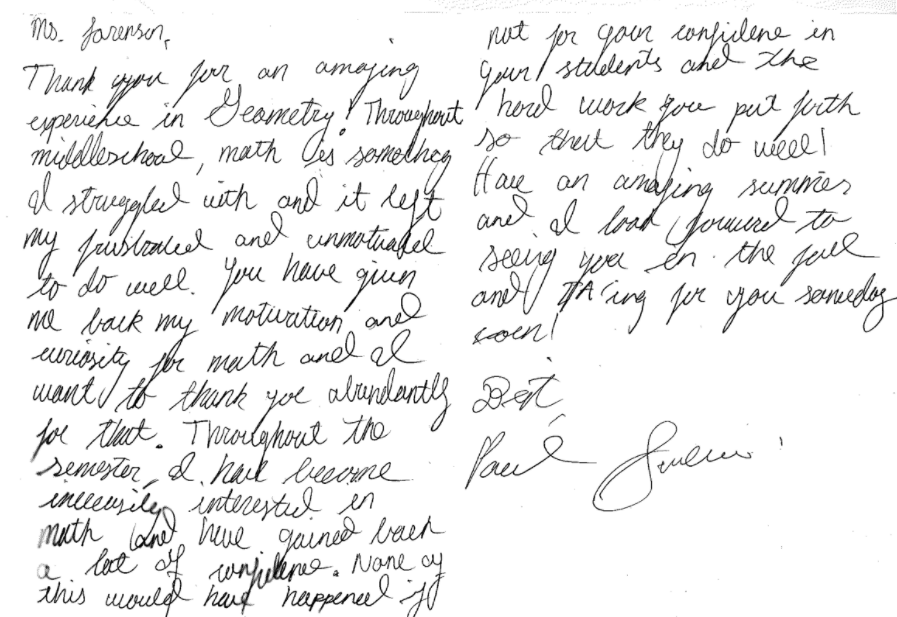 Ms. Sorenson,
Thank you for an amazing
experience in Geometry! Throughout
middleschool, math is something
I struggled with and it left
my frustrated and unmotivated
to do well. You have given
me back my motivation and
curiosity for math and I
want to thank you abundantly
for that. Throughout the
semester, I have become
increasily interested in
math and have gained back
a lot of confidence. None of
this would have happened if
not for your confidene in
your students and the
hard work you put forth
so that they do well!
Have an amazing summer
and I look forward to
seeing you in the fall
and TA'ing for you someday
soon!
Best,
Paul